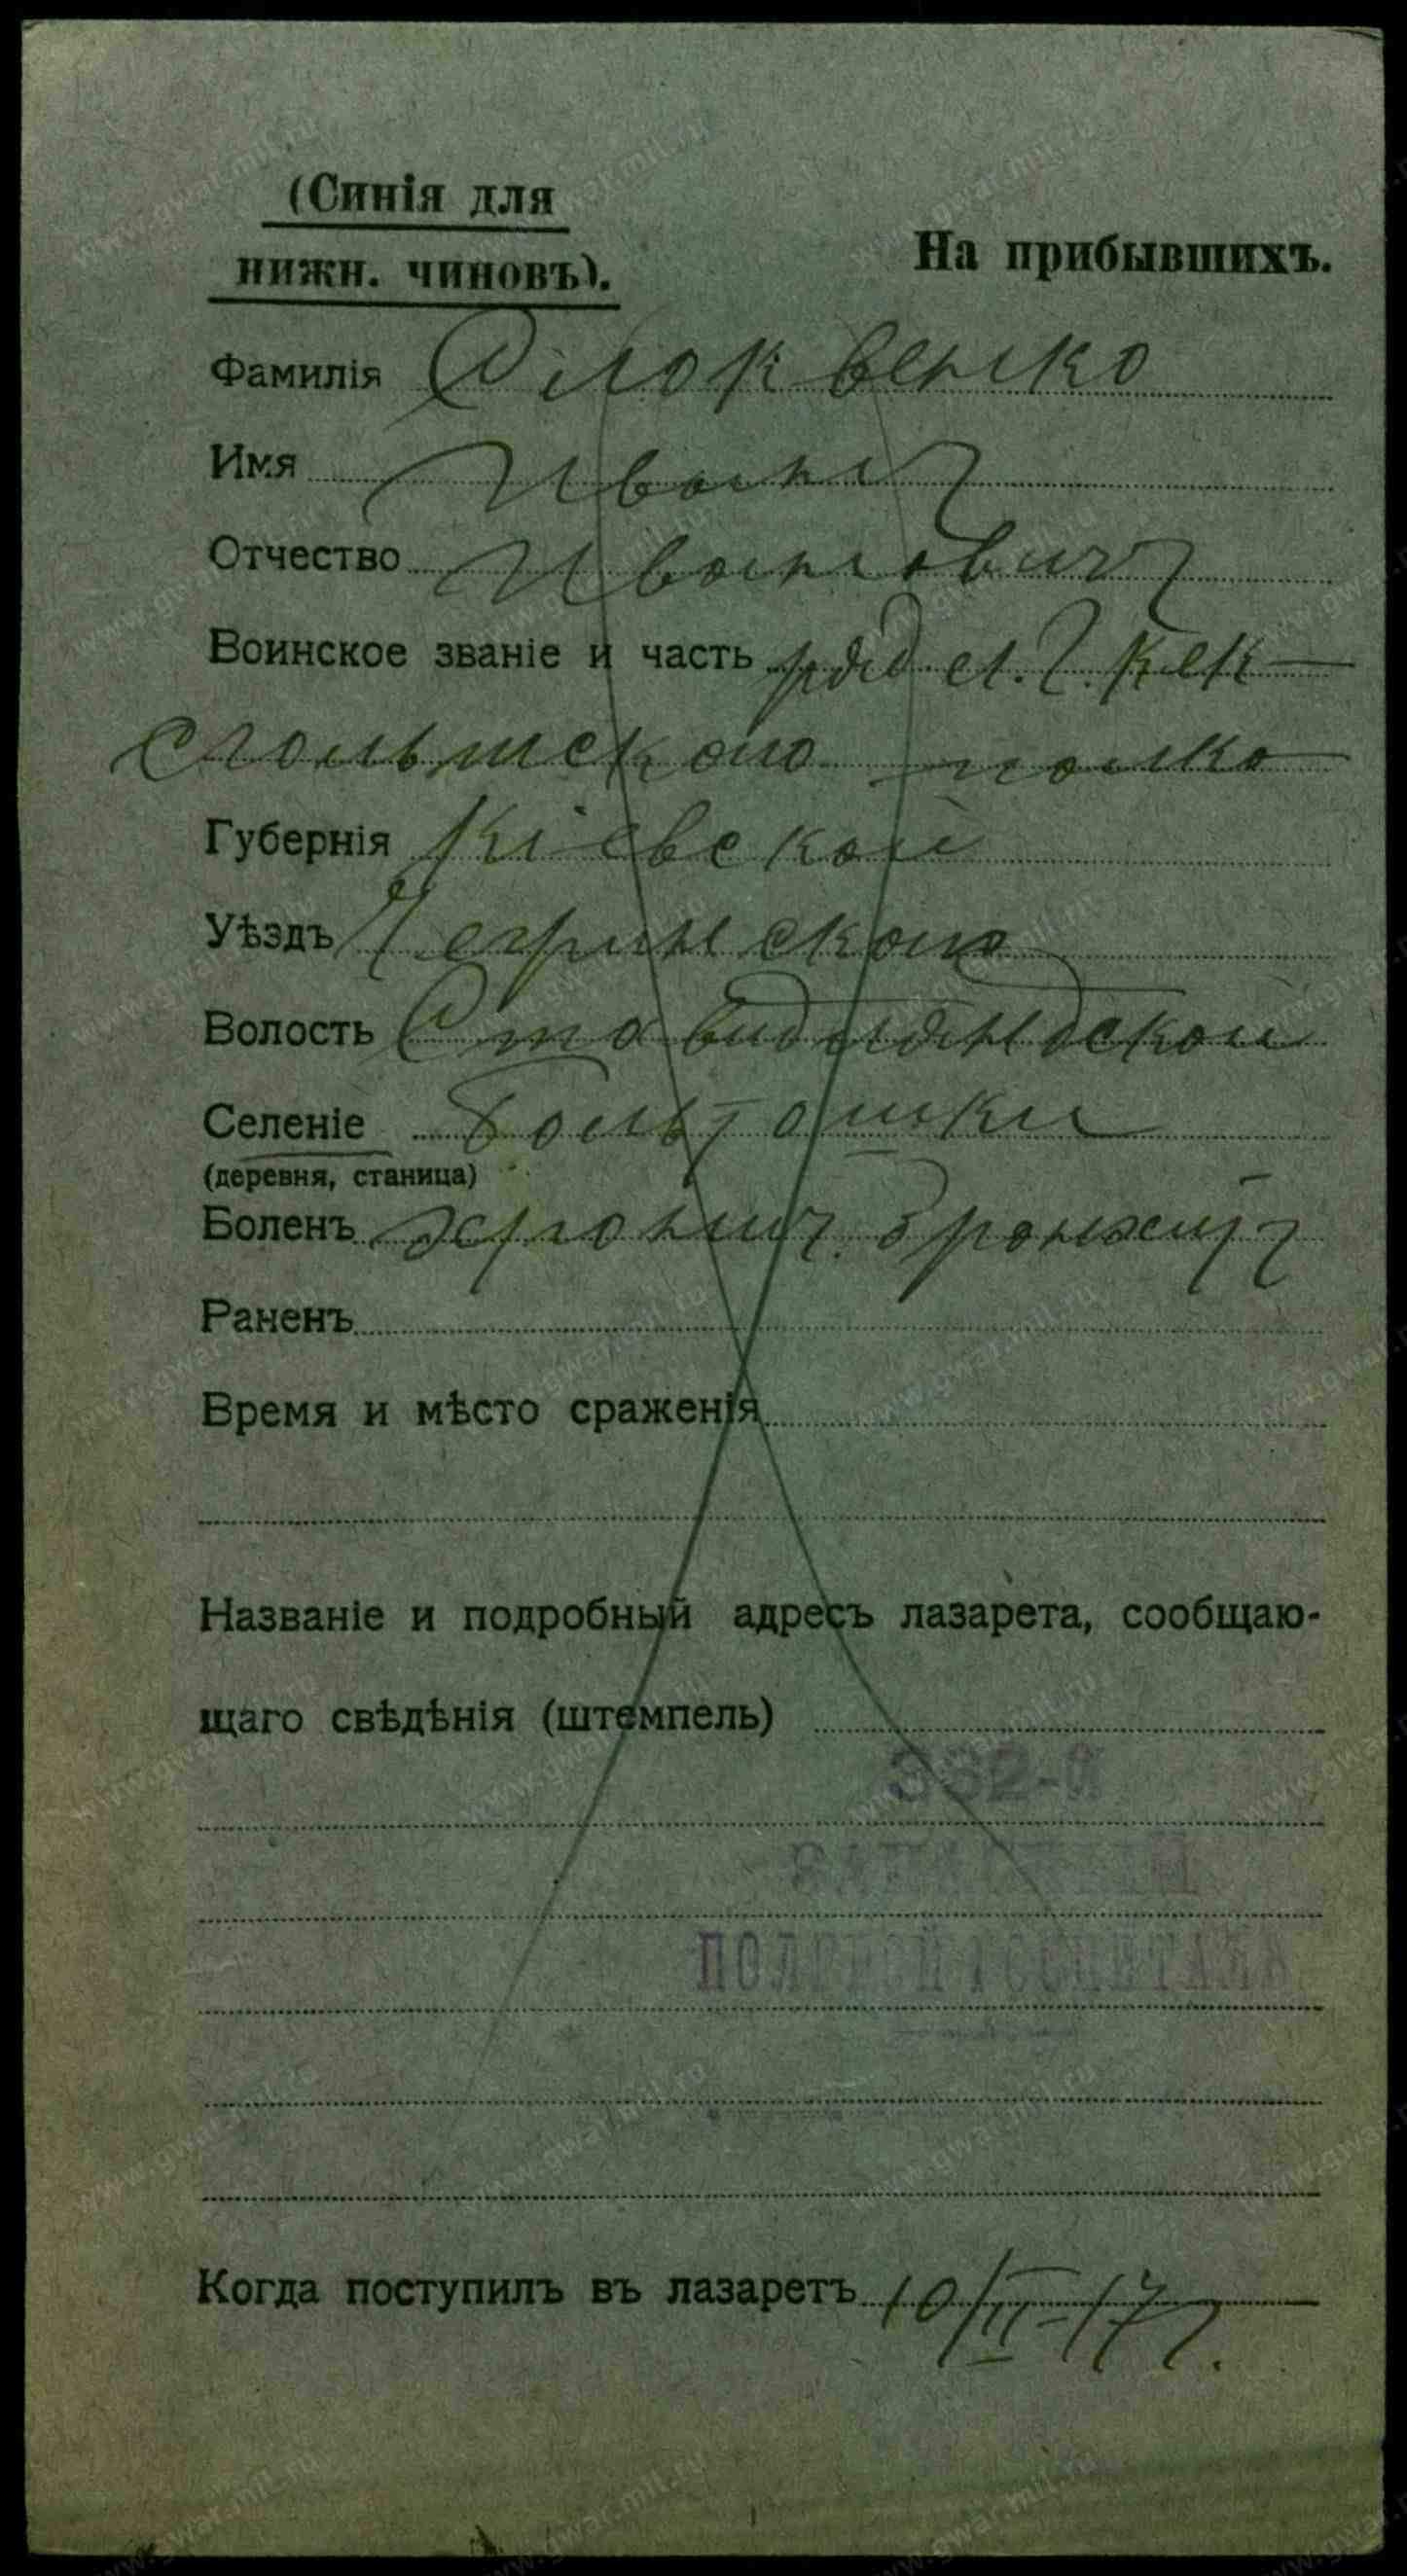 (Синія для
нижн. чиновъ).
На прибывшихъ.
Фамилія
Имя Иванъ
Отчество Ивановичъ
Воинское званіе и часть ряд. л. г. Кек-
сгольмскаго полка
Губернія Кіевской
Уѣздъ Чегринскаго
Волость
Селеніе Болтышки
(деревня, станица)
Боленъ хронич. бронхитъ
Раненъ
Время и мѣсто сраженія
Названіе и подробный адресъ лазарета, сообщаю-
щаго свѣдѣнія (штемпель)
332-й
ПОЛЕВОЙ ГОСПИТАЛЬ
Когда поступилъ въ лазаретъ 10/II-17 г.